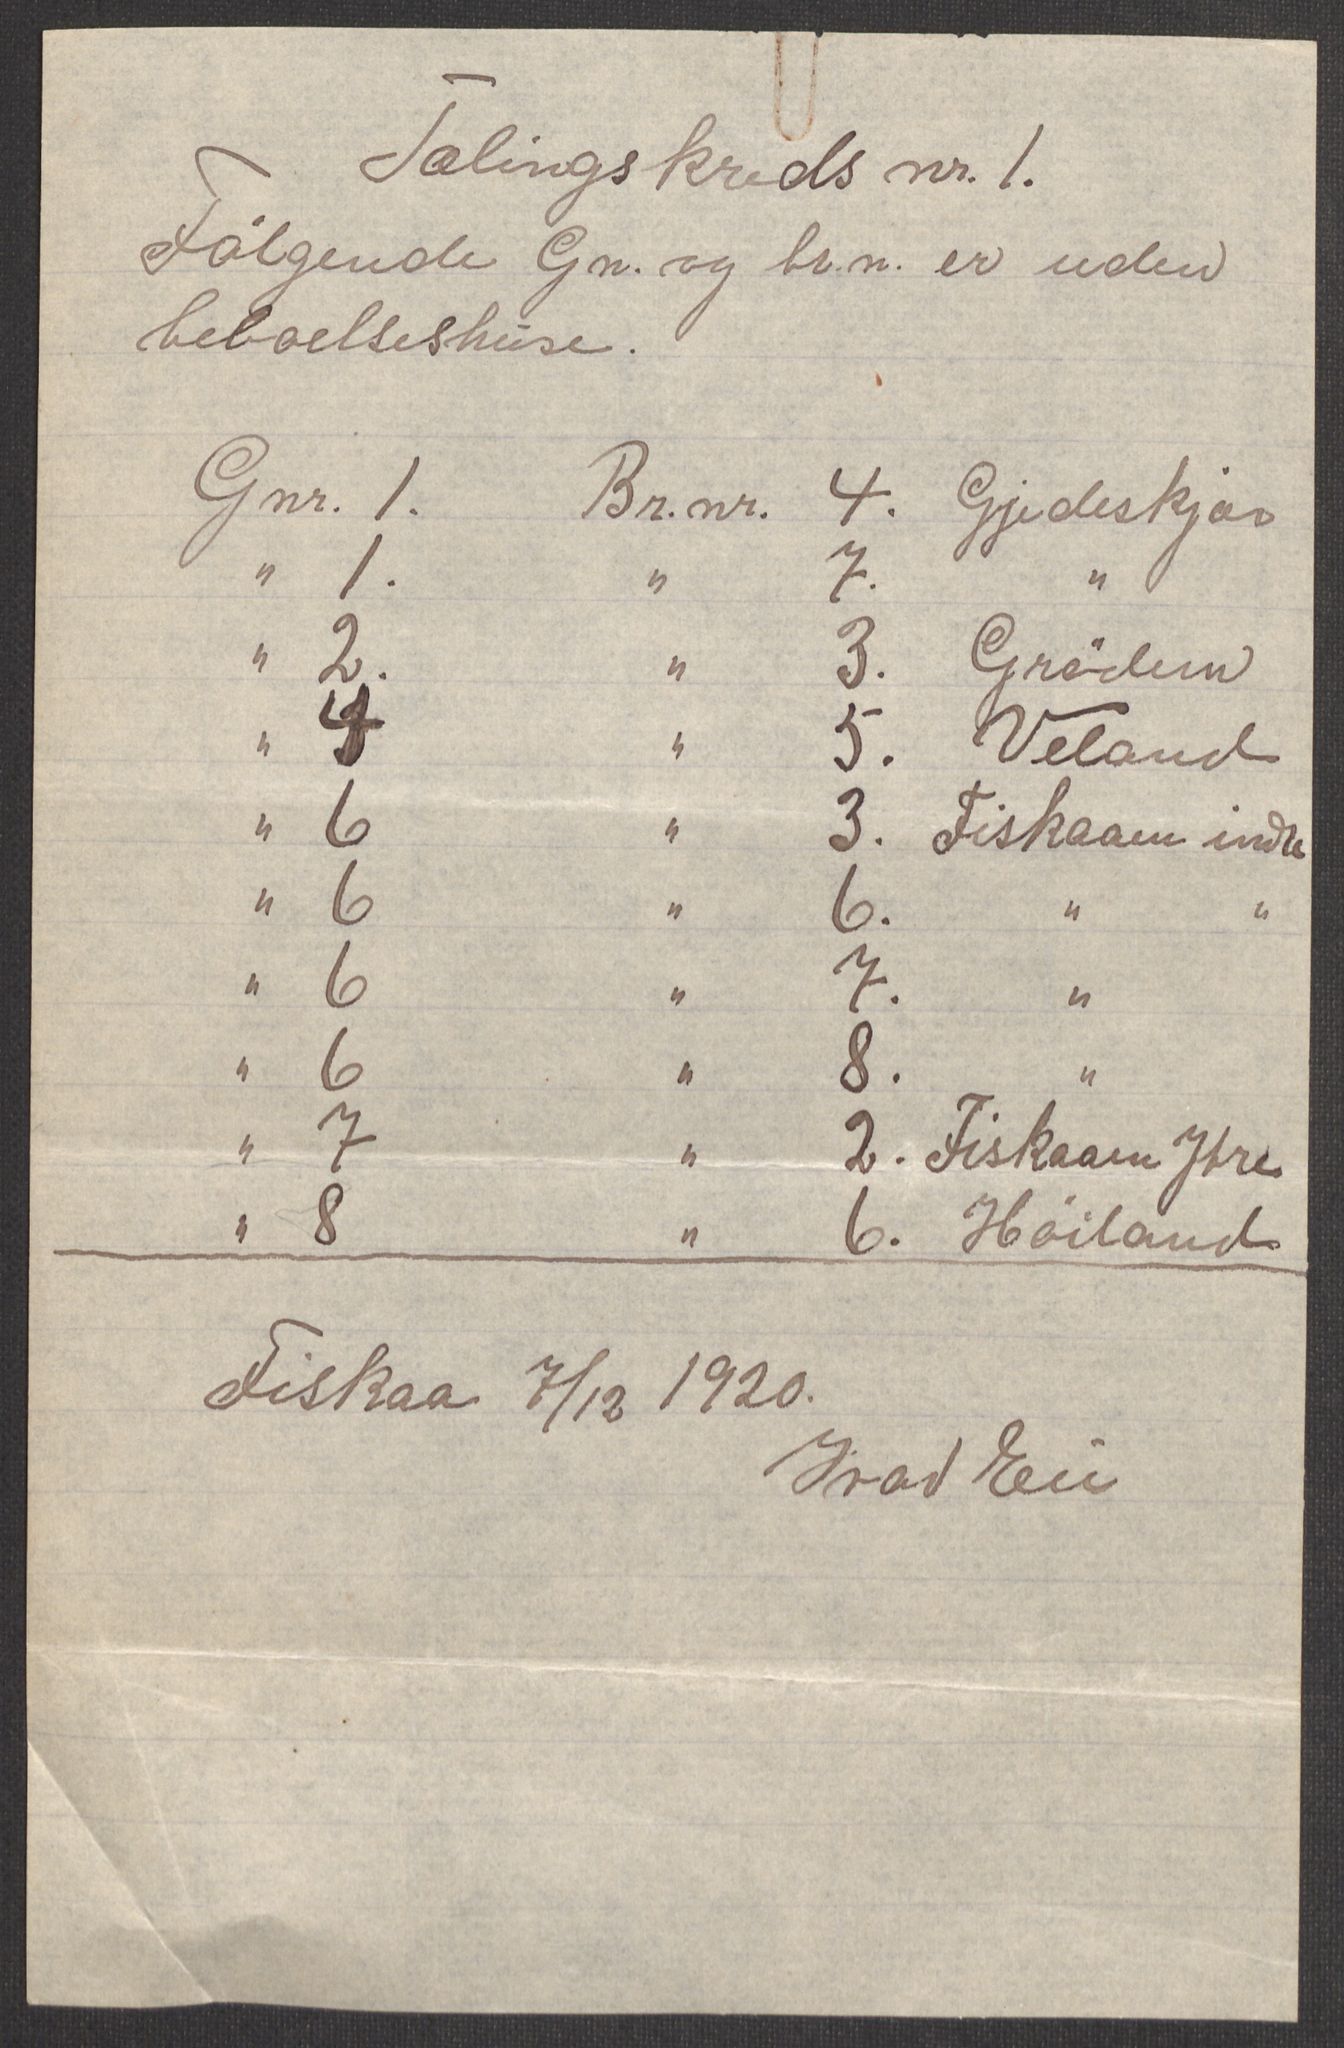 Tælingskreds nr. 1.
Følgende Gn. og br.n. er uden
beboelseshuse.
Gnr. 1. Br.nr. 4. Gjedeskjær
" 1. " 7. "
" 2. " 3. Grödem
" 4 " 5. Veland
" 6 " 3. Fiskaaen indre
" 6 " 6. " "
" 6 " 7. "
" 6 " 8. "
" 7 " 2. Fiskaaen Ytre
" 8 " 6. Höiland
Fiskaa 7/12 1920.